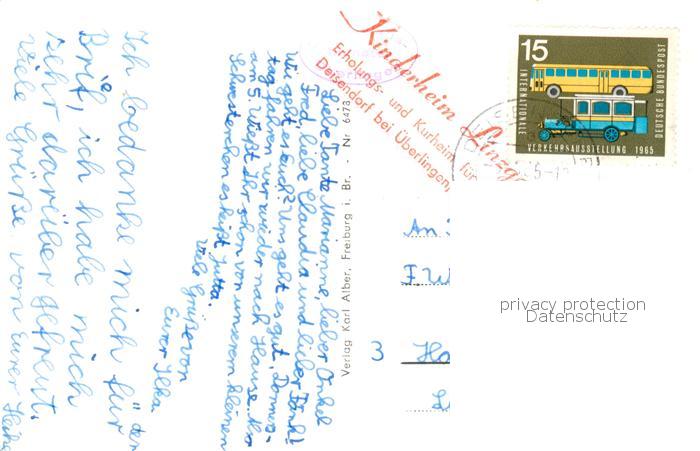 Liebe Tante Marianne, lieber Onkel
Fred, liebe Claudia und lieber Dirk!
Wie geht es euch? Uns geht es gut, Donners-
tag fahren wir wieder nach Hause. Also
am 5. Wißt Ihr schon von unserem kleinen
Schwesterchen es heißt Jutta.
Viele Grüße von
Eurer Ilka.
Ich bedanke mich für den
Brif, ich habe mich
sehr darüber gefreut.
Viele Grüße von Eurer Heike
Verlag Karl Alber, Freiburg i. Br. - Nr 6473
Kinderheim Linzg
Erholungs- und Kurheim für
Deisendorf bei Überlingen,
15
INTERNATIONALE
VERKEHRSAUSSTELLUNG 1965
DEUTSCHE BUNDESPOST
An
F.W
3 Ha
privacy protection
Datenschutz